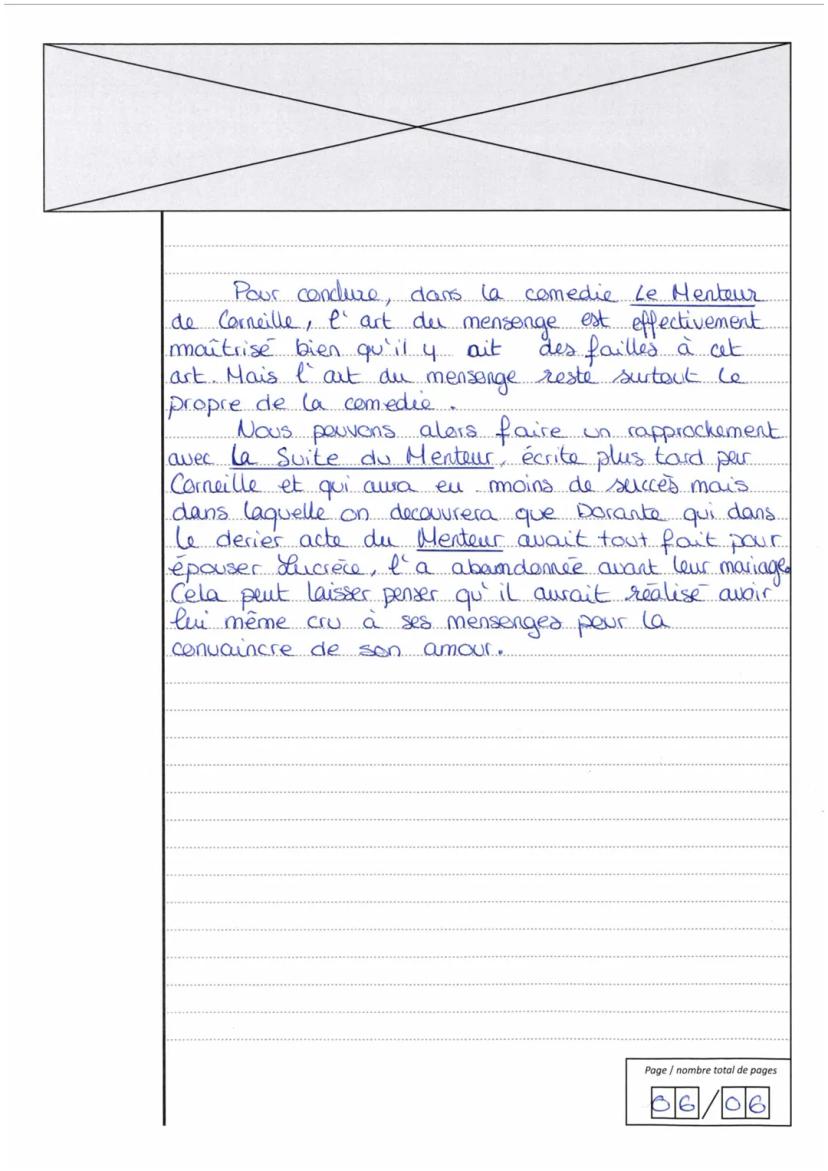 Pour conclure, dans la comedie Le Menteur
de Corneille, l'art du mensonge est effectivement
maîtrisé bien qu'il y ait des failles à cet
art. Mais l'art du mensonge reste surtout le
propre de la comedie.
Nous pouvons alors faire un rapprochement
avec la Suite du Menteur, écrite plus tard par
Corneille et qui aura eu moins de succès mais
dans laquelle on decouvrera que Dorante qui dans
le derier acte du Menteur avait tout fait pour
épouser Lucrèce, l'a abamdonnée avant leur mariage.
Cela peut laisser penser qu'il aurait réalisé avoir
lui même cru à ses mensenges pour la
convaincre de son amour.
Page / nombre total de pages
06/06